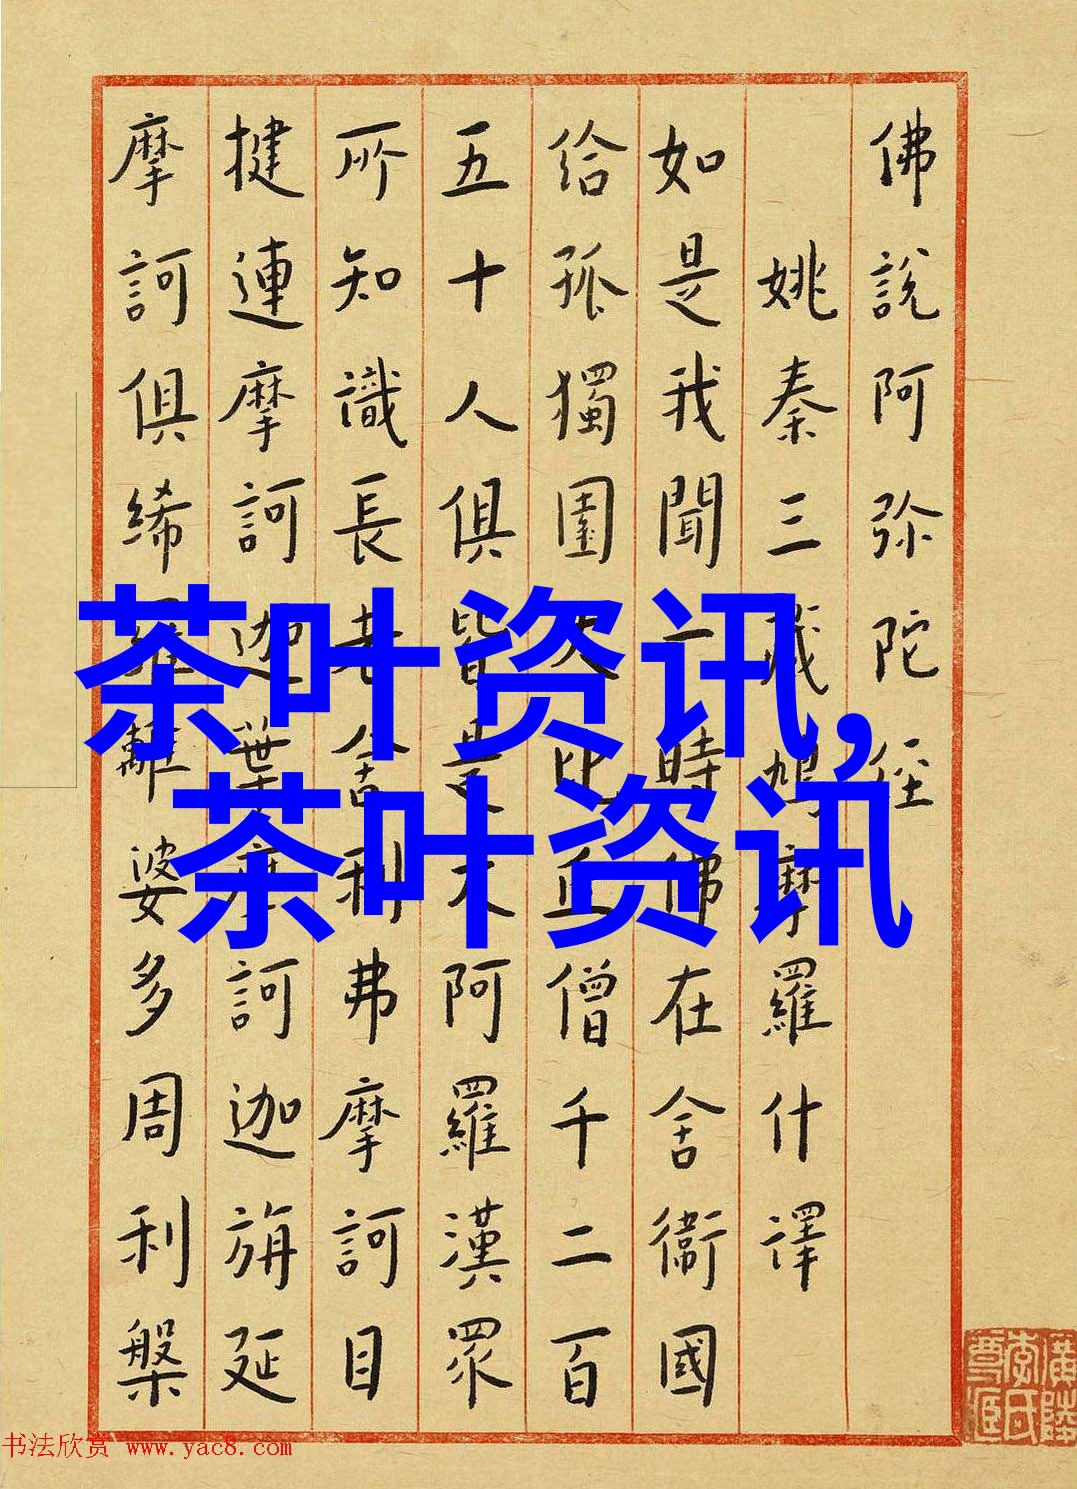 佛說阿弥陀經
姚秦三藏鳩摩羅什譯
如是我聞一時佛在舍衛國
給孤獨園大比丘僧千二百
五十人俱皆是大阿羅漢眾
所知識長老舍利弗摩訶目
揵連摩訶迦葉摩訶迦旃延
摩訶俱絺羅離婆多周利槃
茶叶资讯,
茶叶资讯
书法欣赏 www.yac8.com